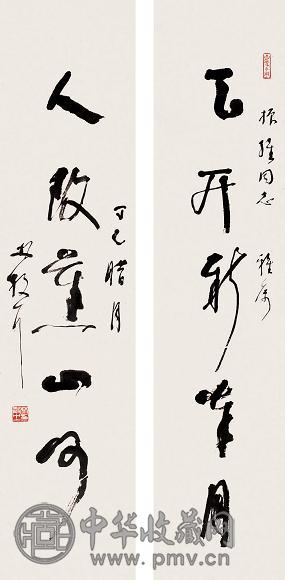 同志 雅属
天开新岁月
人改舊山河
丁巳腊月
林散耳
中华收藏网
www.pmv.cn